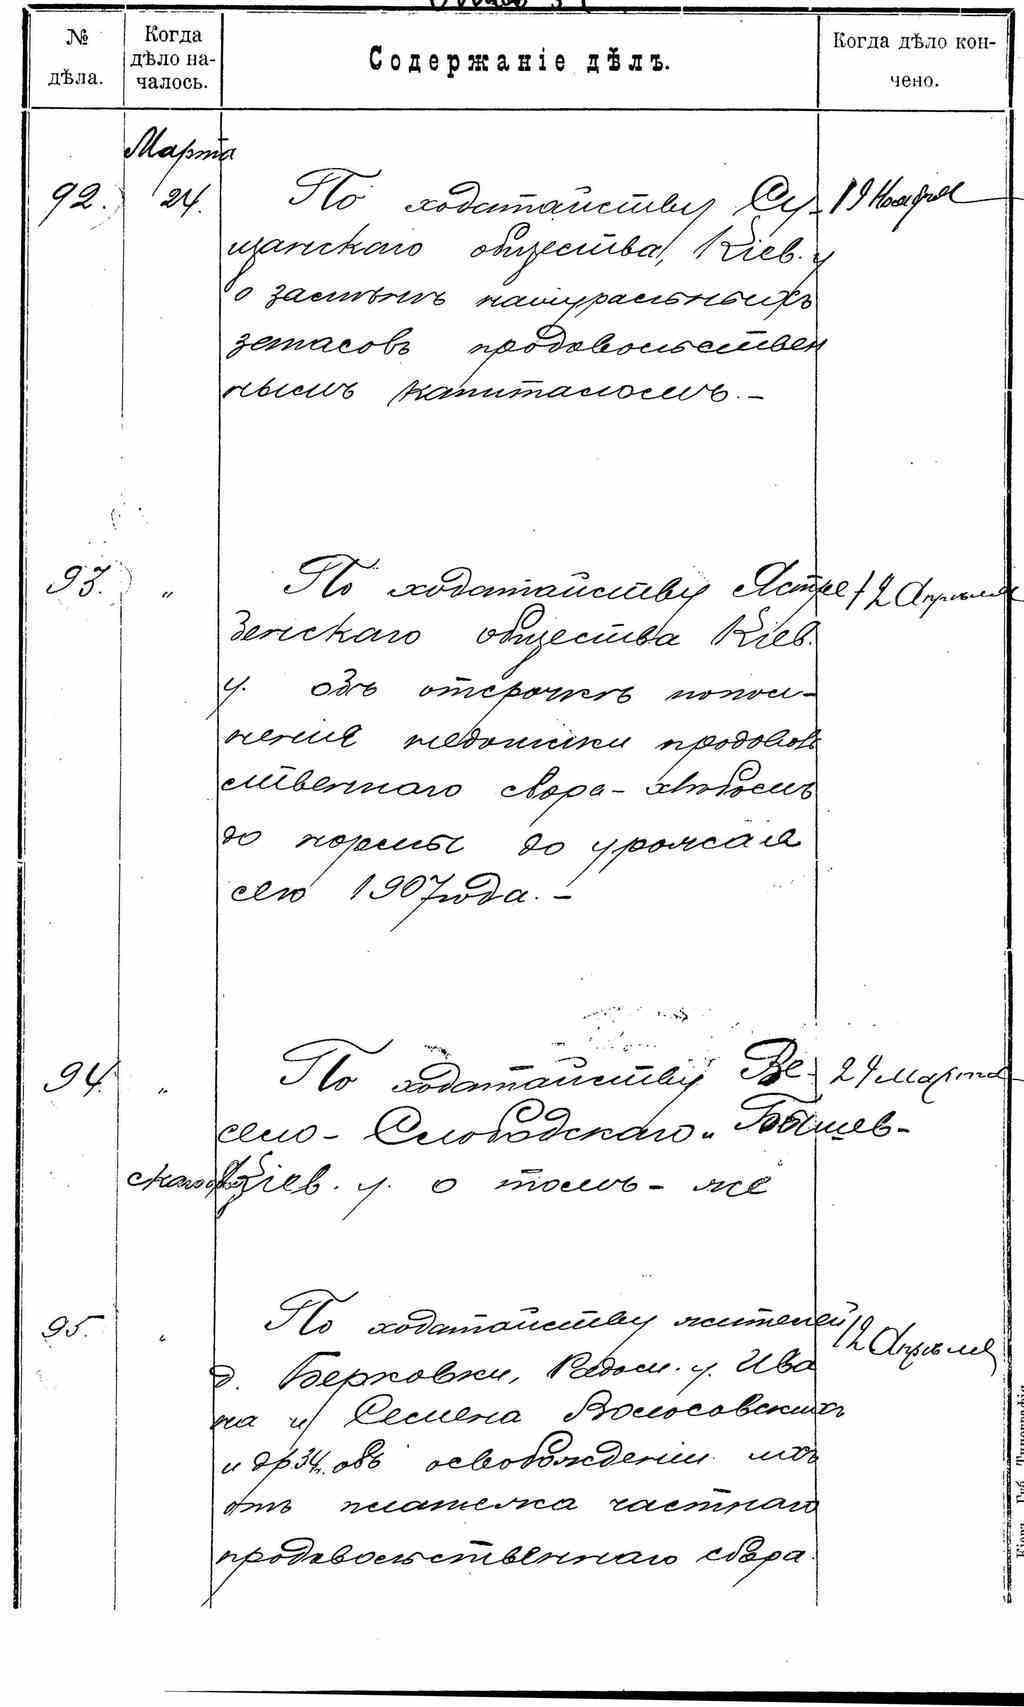 № дѣла.
Когда дѣло на-
чалось.
Содержаніе дѣлъ.
Когда дѣло кон-
чено.
Марта
92. 24. По ходатайству Су- 19 Ноября
щанскаго общества, Кіев. у
о замѣнѣ натуральныхъ
запасовъ продовольствен
нымъ капиталомъ. –
93. „ По ходатайству Ястре 12 Апрѣля
бенскаго общества Кіев.
у. объ отсрочкѣ попол-
ненія недоимки продоволь
ственнаго сбора – хлѣбомъ
до нормы до урожая
сего 1907 года. –
94. „ По ходатайству Ве- 24 Марта
село – Слободскаго и Бышев-
скаго Кіев. у. о томъ – же
95. „ По ходатайству жителей 12 Апрѣля
д. Берковки, Радом. у. Ива
на и Семена Волосовскихъ
и др. 34. объ освобожденіи ихъ
отъ платежа частнаго
продовольственнаго сбора.
Кіевъ. Губ. Типографія